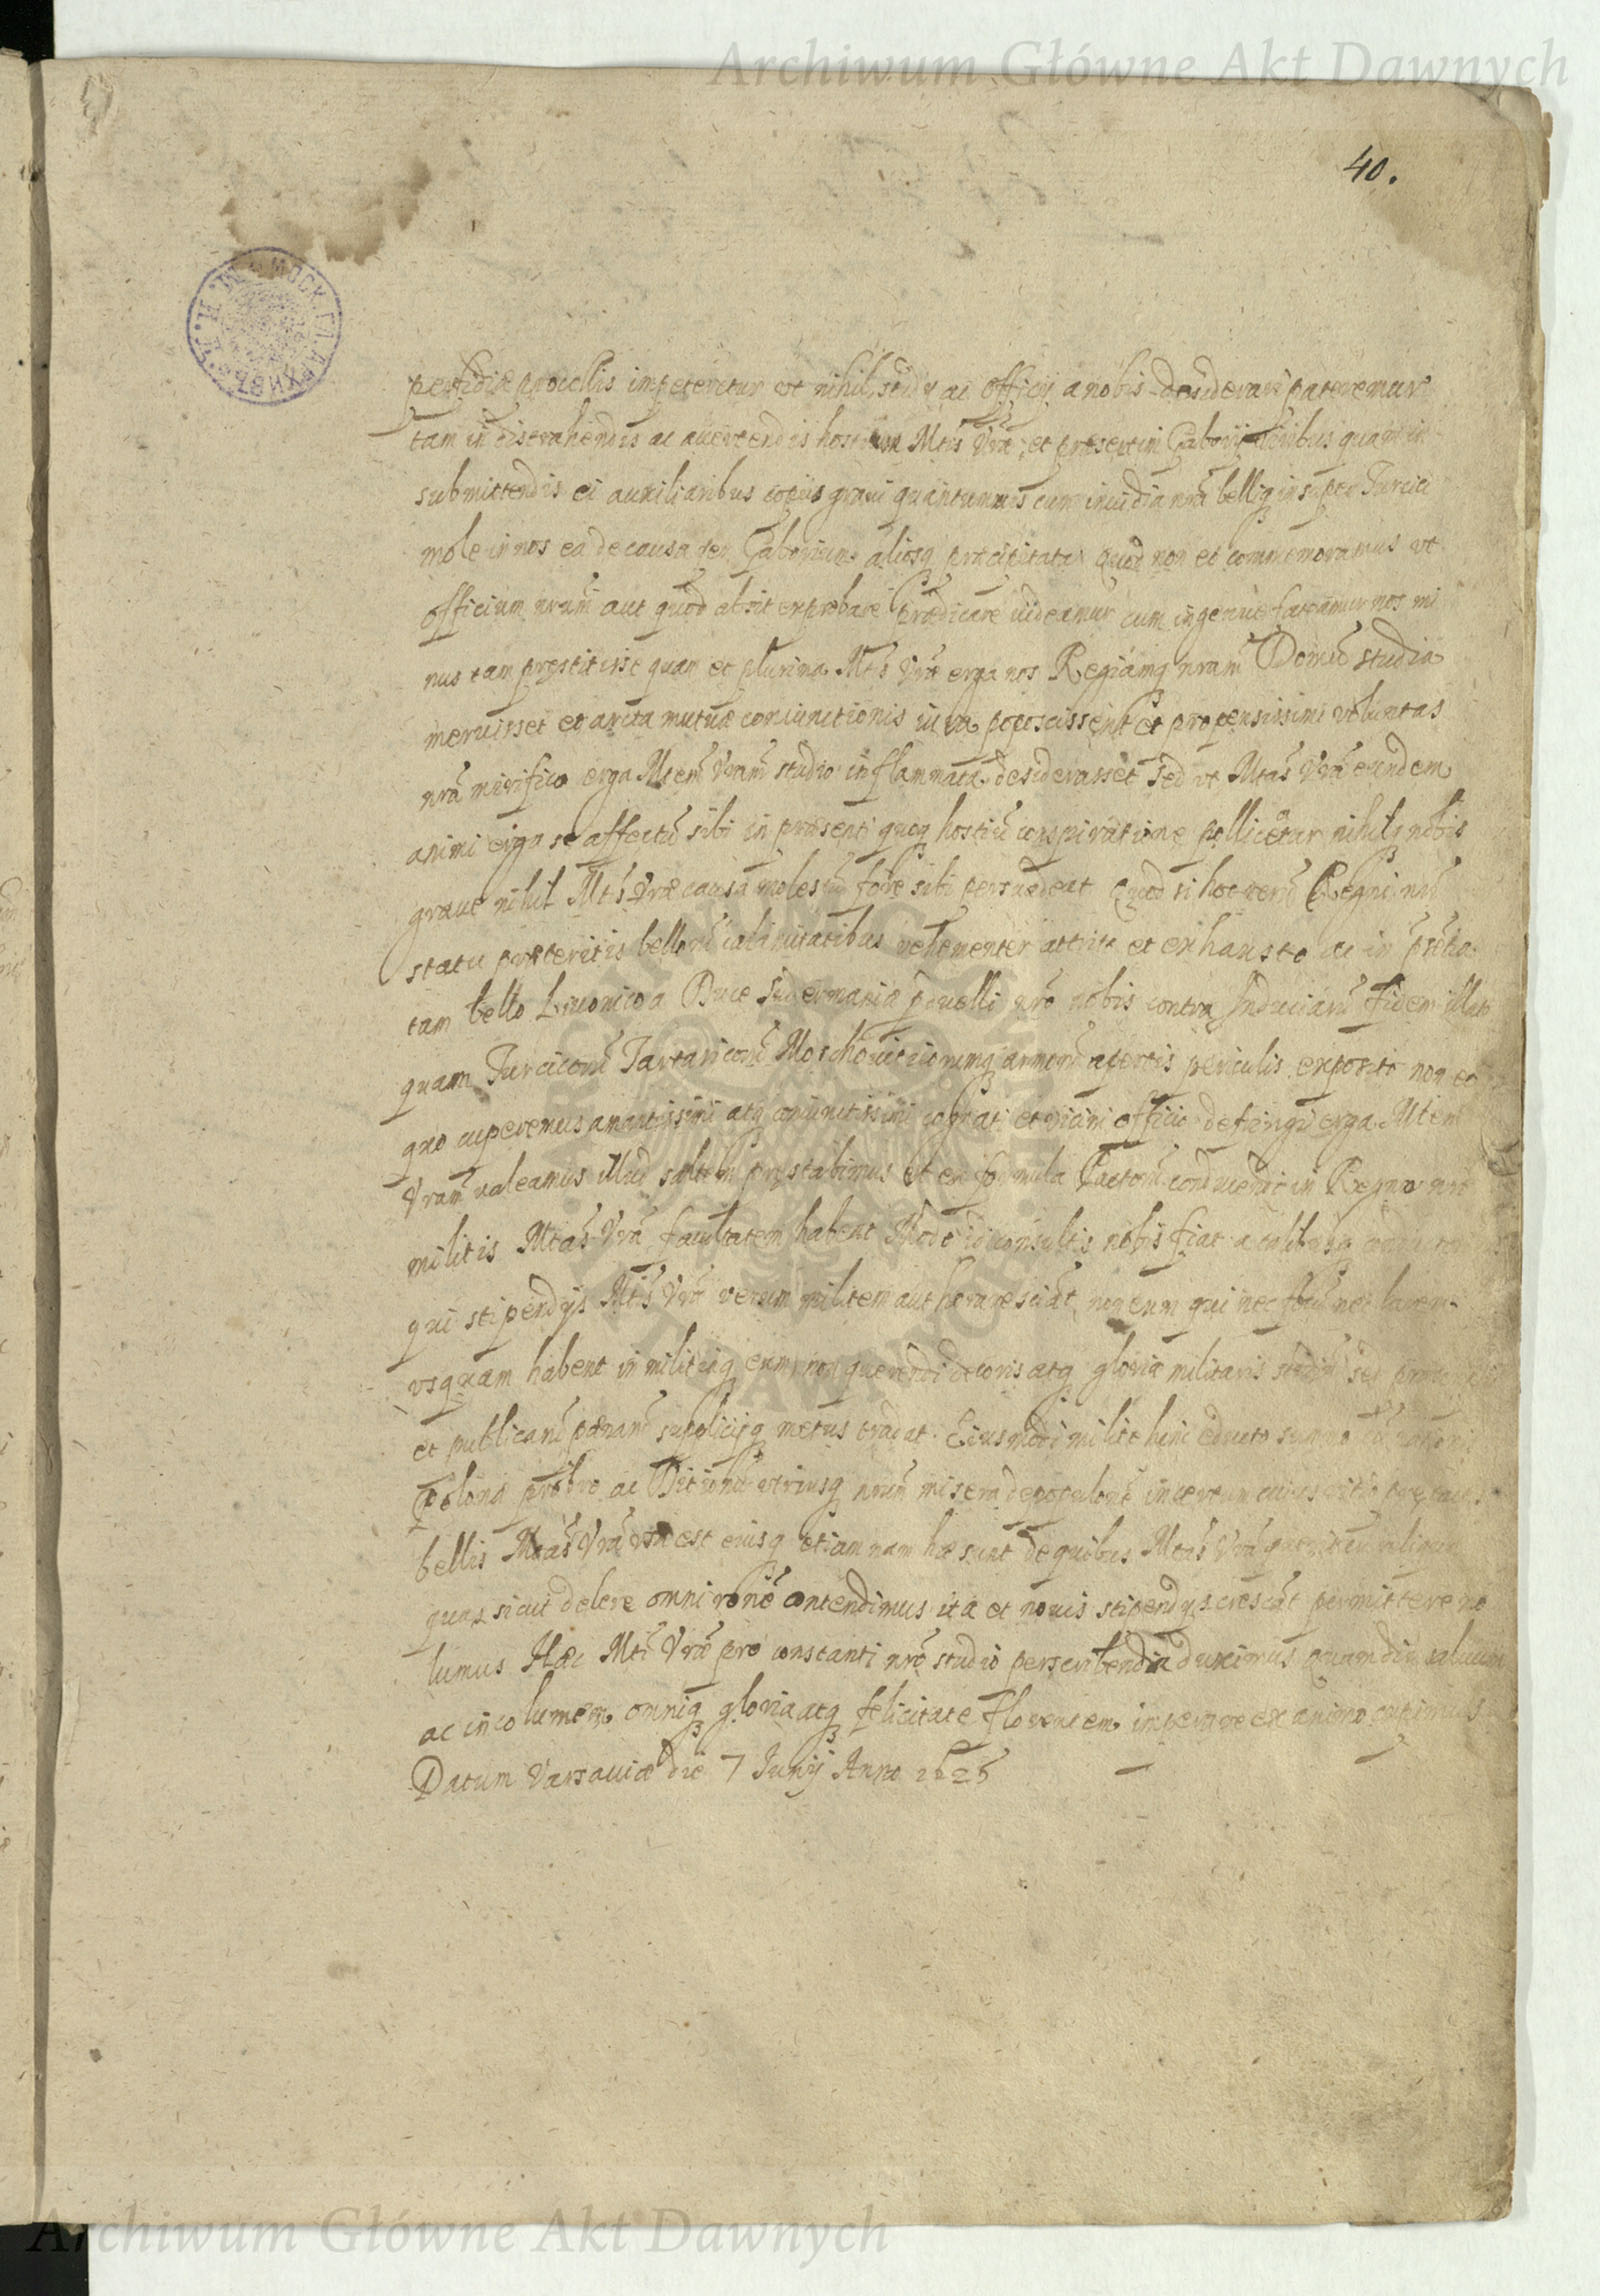 Archiwum Główne Akt Dawnych
40.
perfidiæ procellis impeteretur ut nihil studij ac officij a nobis desiderari pateremur
tam in distrahendis ac avertendis hostium Mtis Vræ, et præsertim Gaborij viribus quam in
submittendis ei auxiliaribus copijs gravi quantumvis cum invidia nra belliq insuper Turcici
mole in nos ea de causa per Gaborium aliosq præcipitata Quod non eo commemoramus ut
officium nrum aut quod absit exprobare prædicare videamur cum ingenue fateamur nos mi
nus tam præstitisse quam et plurima Mtis Vræ erga nos Regiamq nram Domum studia
meruisset et arcta mutuæ coniunctionis iura poposcissent et propensissimi voluntas
nra mirifico erga Mtem Vram studio inflammata desiderasset Sed ut Mtas Vra eundem
animi erga se affectum sibi in præsenti quoq hostium conspiratione polliceatur nihilq nobis
grave nihil Mtis Vræ causa molestum fore sibi persuadeat Quod si hoc rerum Regni nri
statu præteritis bellorum calamitatibus vehementer attrito et exhausto ac in
tam bello Livonico a Duce Sudermaniæ perduelli nro nobis contra Induciarum fidem illato
quam Turcicorum Tartaricorum Moschoviticorumq armorum apertis periculis exposito non eo
quo cuperemus amantissimi atq coniunctissimi cognati et vicini officio defungi erga Mtem
Vram valeamus illud saltem præstabimus ut ex formula Pactorum conducendi in Regno nro
militis Mtas Vra facultatem habeat Modo id consultis nobis fiat a talibusq
qui stipendijs Mtis Vræ verum militem authorare sciat, non eum qui nec focum nec larem
usquam habent in militiaq eum non quærendi decoris atq gloriæ militaris studium sed
et publicarum pænarum supplicijq metus tradat. Eiusmodi milite hinc educto summo cum nationis
Polonæ probro ac Ditionum utriusq nrum misera depopulatione
bellis Mtas Vra usa est eiusq etiamnum hæ sunt de quibus Mtas Vra
quas sicut delere omni ratione contendimus ita et novis stipendijs crescat permittere no
lumus Hæc Mti Vræ pro constanti nro studio perscribenda duximus quam diu salvam
ac incolumem omniq gloria atq felicitate florentem imperare ex animo cupimus
Datum Varsaviæ die 7 Junij Anno 1625
Archiwum Główne Akt Dawnych